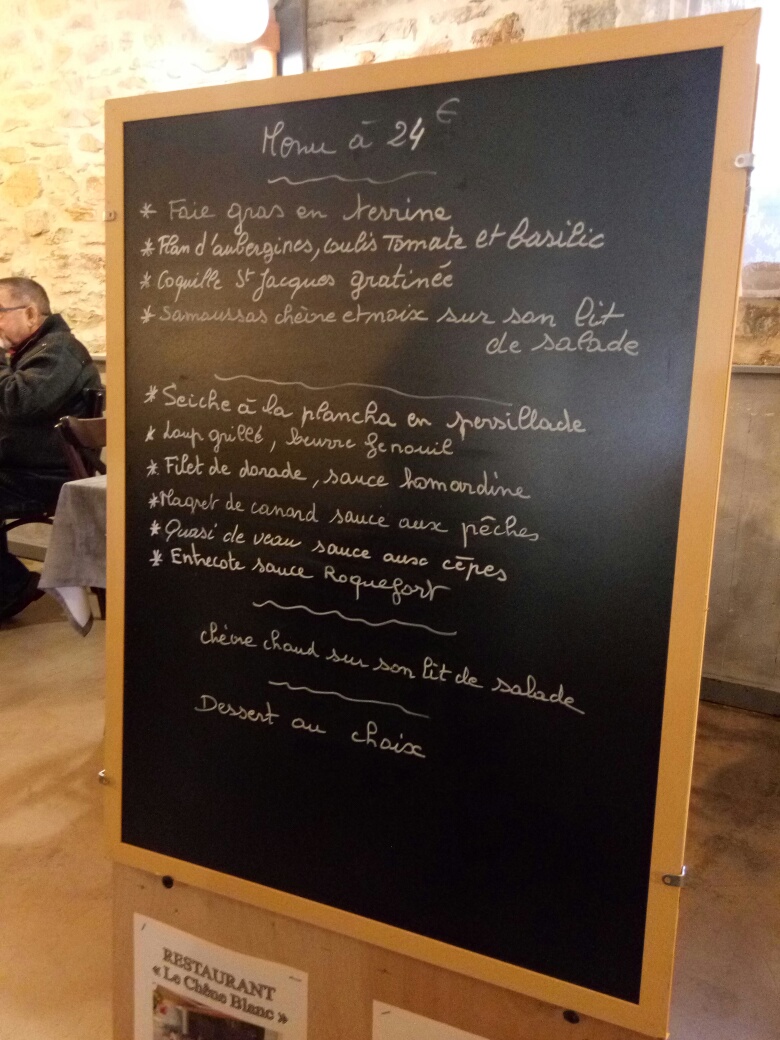 Menu à 24€
* Foie gras en terrine
* Flan d'aubergines, coulis Tomate et basilic
* Coquille St Jacques gratinée
* Samoussas chèvre et noix sur son lit
de salade
* Seiche à la plancha en persillade
* Loup grillé, beurre fenouil
* Filet de dorade, sauce homardine
* Magret de canard sauce aux pêches
* Quasi de veau sauce aux cèpes
* Entrecote sauce Roquefort
chèvre chaud sur son lit de salade
Dessert au choix
RESTAURANT
« Le Chêne Blanc »